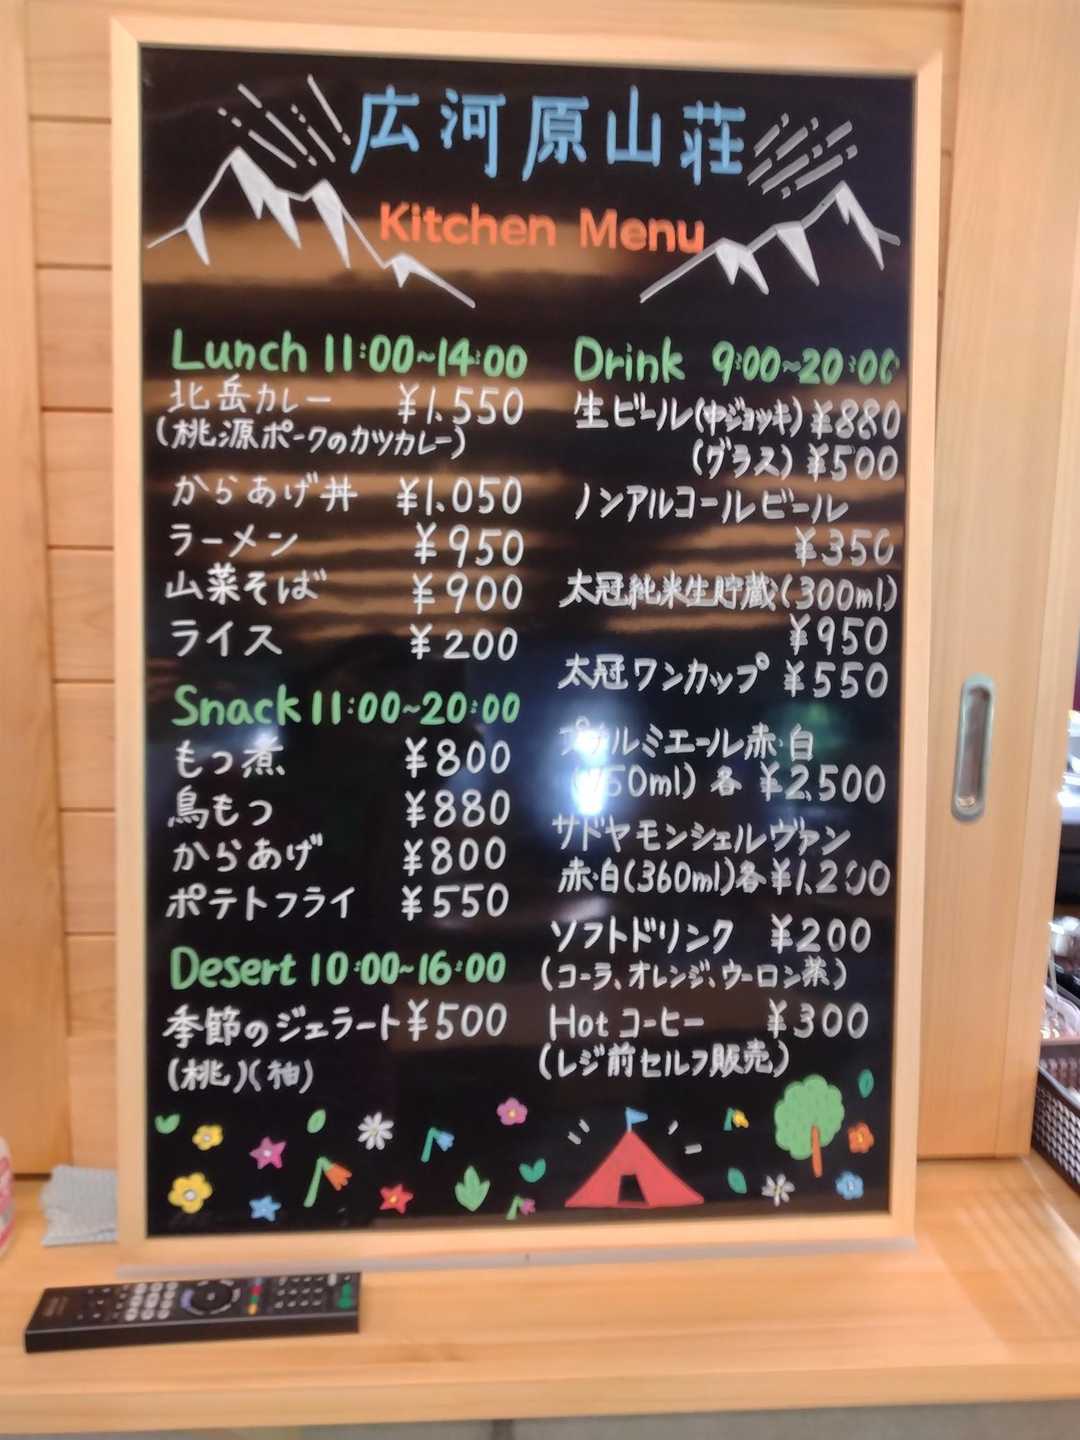 広河原山荘
Kitchen Menu
Lunch 11:00~14:00
北岳カレー ¥1,550
(桃源ポークのカツカレー)
からあげ丼 ¥1,050
ラーメン ¥950
山菜そば ¥900
ライス ¥200
Snack 11:00~20:00
もつ煮 ¥800
鳥もつ ¥880
からあげ ¥800
ポテトフライ ¥550
Desert 10:00~16:00
季節のジェラート ¥500
(桃)(柚)
Drink 9:00~20:00
生ビール(中ジョッキ) ¥880
(グラス) ¥500
ノンアルコールビール
¥350
太冠純米生貯蔵(300ml)
¥950
太冠ワンカップ ¥550
プチルミエール赤・白
各 ¥2,500
サドヤモンシェルヴァン
赤・白(360ml)各¥1,200
ソフトドリンク ¥200
(コーラ、オレンジ、ウーロン茶)
Hotコーヒー ¥300
(レジ前セルフ販売)